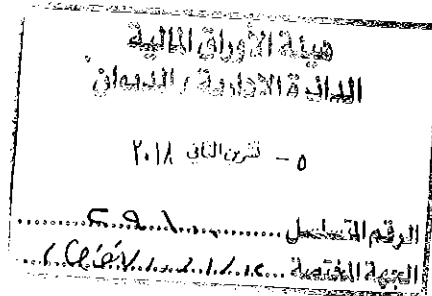 هيئة الأوراق المالية
الدائرة الادارية / الديوان
٥ - تشرين الثاني ٢٠١٨
الرقم المتسلسل
الجهة المختصة